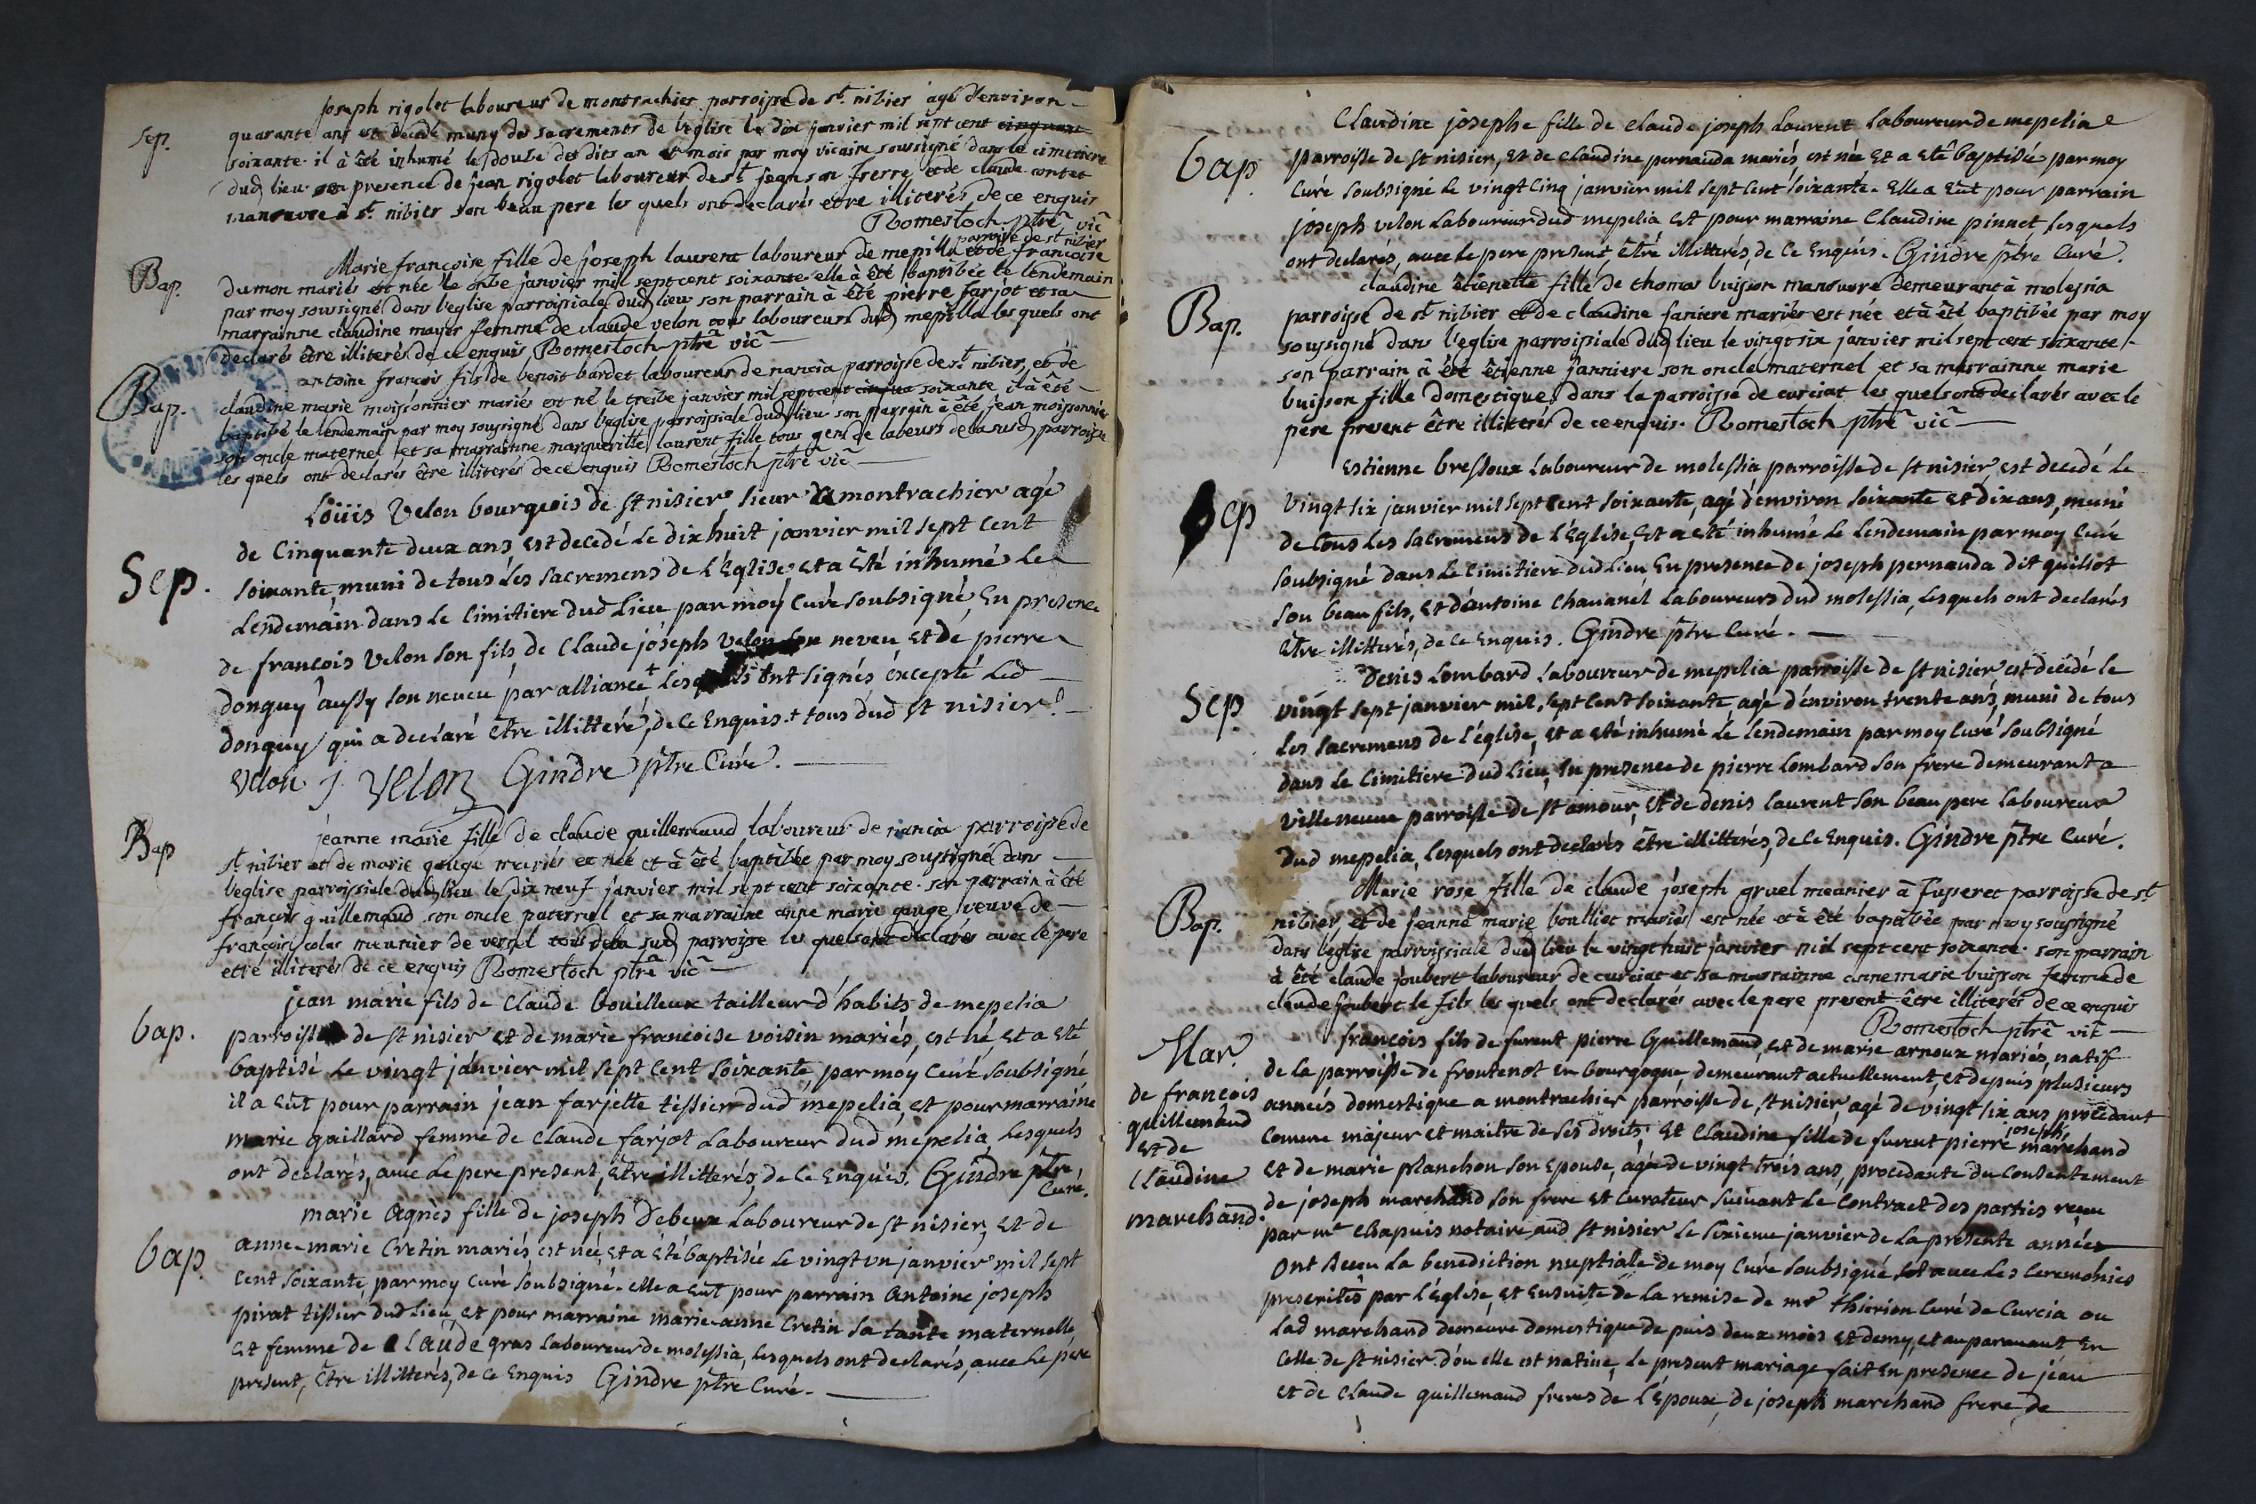 Sep.
joseph rigolet laboureur de montrachier parroisse de st. nizier agé d'environ
quarante ans est décédé muny des sacrements de l'eglise le dix janvier mil sept cent cinquante
soixante. il à été inhumé le douze des dits an et mois par moy vicaire soussigné dans le cimetiere
dud lieu en presence de jean rigolet laboureur de st jean son frerre, et de claude contet
manouvre à st. nizier son beau pere les quels ont declarés etre illiterés de ce enquis
Romestoch ptre vic
Bap.
parroisse de st nizier
Marie francoise fille de joseph laurent laboureur de mepilla et de francoise
dumon mariés est née le onze janvier mil sept cent soixante. elle à été baptizée le lendemain
par moy soussigné dans l'eglise parroissiale dud lieu son parrain à été pierre farjot et sa
marrainne claudine mayer femme de claude velon tous laboureurs dud mepilla les quels ont
declarés être illiterés de ce enquis Romestoch ptre vic
Bap.
antoine françois fils de benoit bardet laboureur de nancia parroisse de st. nizier, et de
claudine marie moissonnier mariés est né le treize janvier mil sept cent cinqua soixante il à été
baptizé le lendemain par moy soussigné dans l'eglise parroissiale dud lieu son parrain à été jean moissonnier
son oncle maternel et sa marrainne marguerite laurent fille tous gens de labeurs de la sud parroisse
les quels ont declarés être illiterés de ce enquis Romestoch ptre vic
Sep.
Loüis Velon bourgeois de st nisier sieur de montrachier agé
de Cinquante deux ans, est decedé le dix huit janvier mil sept cent
soixante, muni de tous les sacremens de l'Église et a été inhumé le
lendemain dans le Cimittiere dud lieu par moy Curé soubsigné, En presence
de françois Velon son fils de Claude joseph Velon son neveu et de pierre
donguy aussy son neveu par alliance + lesquels ont signés excepté led
donguy qui a declaré être illitteré, de Ce Enquis. + tous dud st nisier.
Velon J Velon Gindre ptre Curé.
Bap
jeanne marie fille de claude guillemaud laboureur de nancia parroisse de
st. nizier et de marie gauge mariés est née et à été baptizée par moy soussigné dans
l'eglise parroissiale dud lieu le dix neuf janvier mil sept cent soixante. son parrain à été
françois guillemaud son oncle paternel et sa marraine anne marie gauge veuve de
françois colas meunier de versel tous de la sud parroisse les quels ont declarés avec le pere
etre illiterés de ce enquis Romestoch ptre vic
bap.
jean marie fils de Claude bouilloux tailleur d'habits de mepelia
parroisse de st nisier et de marie francoise voisin mariés, est né, et a eté
baptisé le vingt janvier mil sept cent soixante, par moy Curé soubsigné
il a eût pour parrain jean farjette tissier dud mepelia, et pour marraine
marie gaillard femme de Claude farjot laboureur dud mepelia, lesquels
ont declarés, avec le pere present, Etre illitterés, de Ce Enquis. Gindre ptre
Curé.
bap.
marie Agnès fille de joseph debeux laboureur de st nisier, et de
anne-marie Cretin mariés est née, et a été baptisée le vingt un janvier mil sept
Cent soixante, par moy Curé soubsigné. elle a eût pour parrain Antoine joseph
pirat tissier dud lieu, et pour marraine marie-anne Cretin sa tante maternelle
et femme de Claude gras laboureur de molessia, lesquels ont declarés, avec le pere
present, Être illitterés, de Ce Enquis Gindre ptre Curé.
bap.
Claudine josephe fille de claude joseph Laurent laboureur de mepelia
parroisse de st nisier, et de Claudine pernauda mariés est née et a etê baptisée par moy
Curé soubsigné le vingt Cinq janvier mil sept Cent soixante. elle a eût pour parrain
joseph velon laboureur dud mepelia et pour marraine Claudine pinnet lesquels
ont declarés, avec le pere present, êtré illitterés, de Ce Enquis. Gindre ptre Curé.
Bap.
claudine étienette fille de thomas buisson manouvre demeurant à molessia
parroisse de st. nizier et de claudine janiere mariés est née et à été baptizée par moy
soussigné dans l'eglise parroissiale dud lieu le vingt six janvier mil sept cent soixante
son parrain à été étienne janniere son oncle maternel et sa marrainne marie
buisson fille domestique dans la parroisse de curciat les quels ont declarés avec le
pere present être illiterés de ce enquis. Romestoch ptre vic
Sep
Estienne bressoux laboureur de molessia parroisse de st nisier, est decedé le
vingt six janvier mil sept Cent soixante, agé d'environ soixante et dix ans, muni
de tous les sacremens de l'Église, Et a été inhumé le lendemain par moy Curé
soubsigné dans le Cimitiere dud lieu En presence de joseph pernauda dit quiliot
son beau fils, et d'antoine Chavanel laboureurs dud molessia, lesquels ont declarés
être illitterés, de Ce Enquis. Gindre ptre Curé.
Sep
Denis Lombard laboureur de mepelia parroisse de st nisier est decedé le
vingt sept janvier mil sept Cent soixante, agé d'environ trente ans, muni de tous
les sacremens de l'église, et a été inhumé le lendemain par moy Curé soubsigné
dans le Cimitiere dud lieu, En presence de pierre Lombard son frere demeurant a
villeneuve parroisse de st amour, et de denis laurent son beau pere laboureur
dud mepelia, lesquels ont declarés être illitterés, de Ce Enquis. Gindre ptre Curé.
Bap.
Marie rose fille de claude joseph gruel meunier à Fuseret parroisse de st
nizier, et de jeanne marie boulliet mariés est née et à été baptizée par moy soussigné
dans l'eglise parroissiale dud lieu le vingt huit janvier mil sept cent soixante. son parrain
à été claude joubert laboureur de curciat et sa marrainne anne marie buisson femme de
claude joubert le fils les quels ont declarés avec le pere present être illiterés de ce enquis
Romestoch ptre vic
Mar.
de francois
guillemaud
et de
Claudine
marchand.
francois fils de furent pierre Guillemaud, et de marie arnoux mariés, natif
de la parroisse de frontenot en bourgogne, demeurant actuellement, et depuis plusieurs
années domestique a montrachier parroisse de st nisier, agé de vingt six ans, procedant
comme majeur et maitre de ses droits. Et Claudine fille de furent pierre joseph marchand
et de marie planchon son Epouse, agée de vingt trois ans, procedante du Consentement
de joseph marchand son frere et Curateur suivant le Contract des parties recu
par me Chapuis notaire aud st nisier le sixieme janvier de la presente année
Ont Recu la benediction nuptiale de moy Curé soubsigné avec les Ceremonies
prescrites par l'Église, et Ensuite de la remise de mr thierion Curé de Curcia ou
lad marchand demeure domestique depuis deux mois et demy, et auparavant En
Celle de st nisier d'ou elle est native, le present mariage fait En presence de jean
et de Claude guillemaud freres de l'Epoux, de joseph marchand frere de